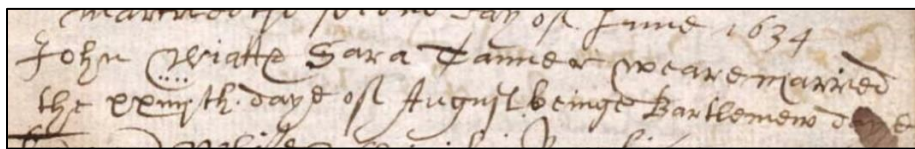 day of June 1634
John Wiatte Sara Tanner weare married
the xxiiijth. daye of August beinge Bartlemew daye